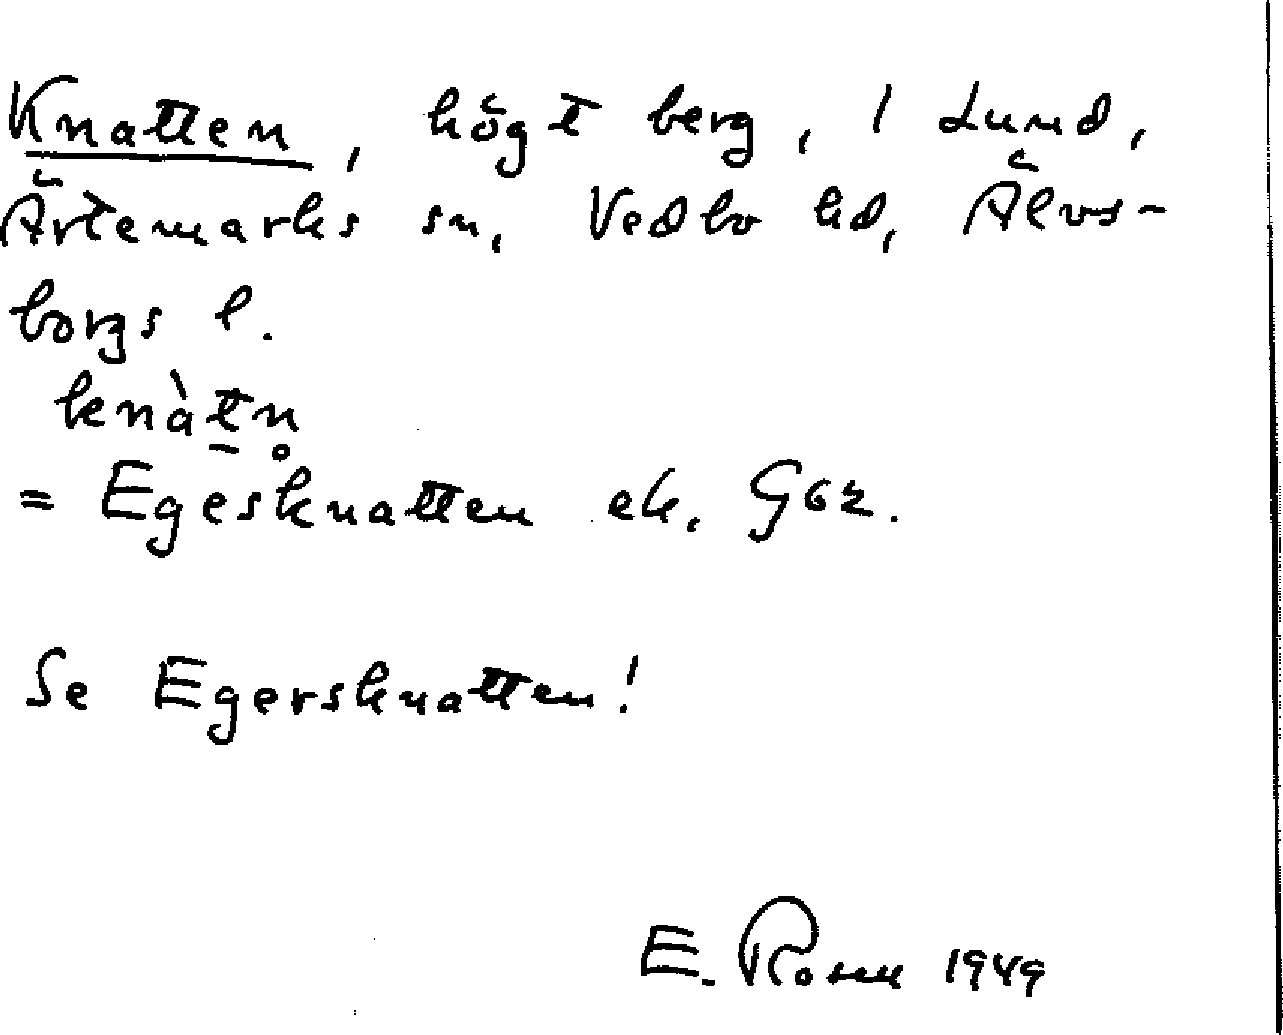 Knatten, högt berg, 1 Lund,
Ärtemarks sn, Vedbo hd, Älvs-
borgs l.
knàt̲n̥
= Egesknatten ek. G62.
Se Egersknatten!
E. Rosen 1949